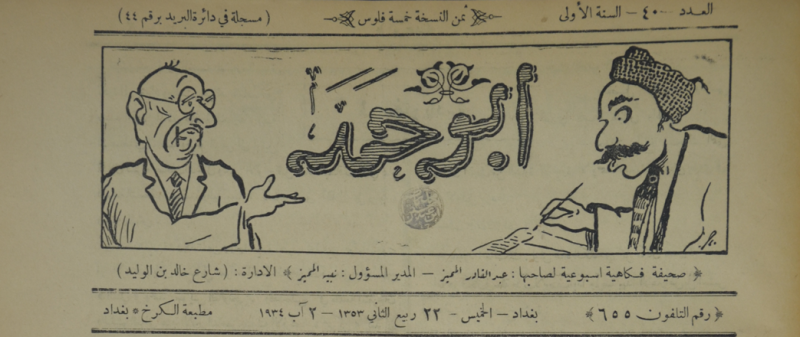 العدد - ٤٠ - السنة الأولى
ثمن النسخة خمسة فلوس
( مسجلة في دائرة البريد برقم ٤٤ )
أبو حمد
﴿ صحيفة فكاهية اسبوعية لصاحبها : عبد القادر المميز - المدير المسؤول : نبيه المميز ﴾ الادارة : ( شارع خالد بن الوليد )
﴿ رقم التلفون ٦٥٥ ﴾
بغداد - الخميس - ٢٢ ربيع الثاني ١٣٥٣ - ٢ آب ١٩٣٤
مطبعة الكرخ ٥ بغداد